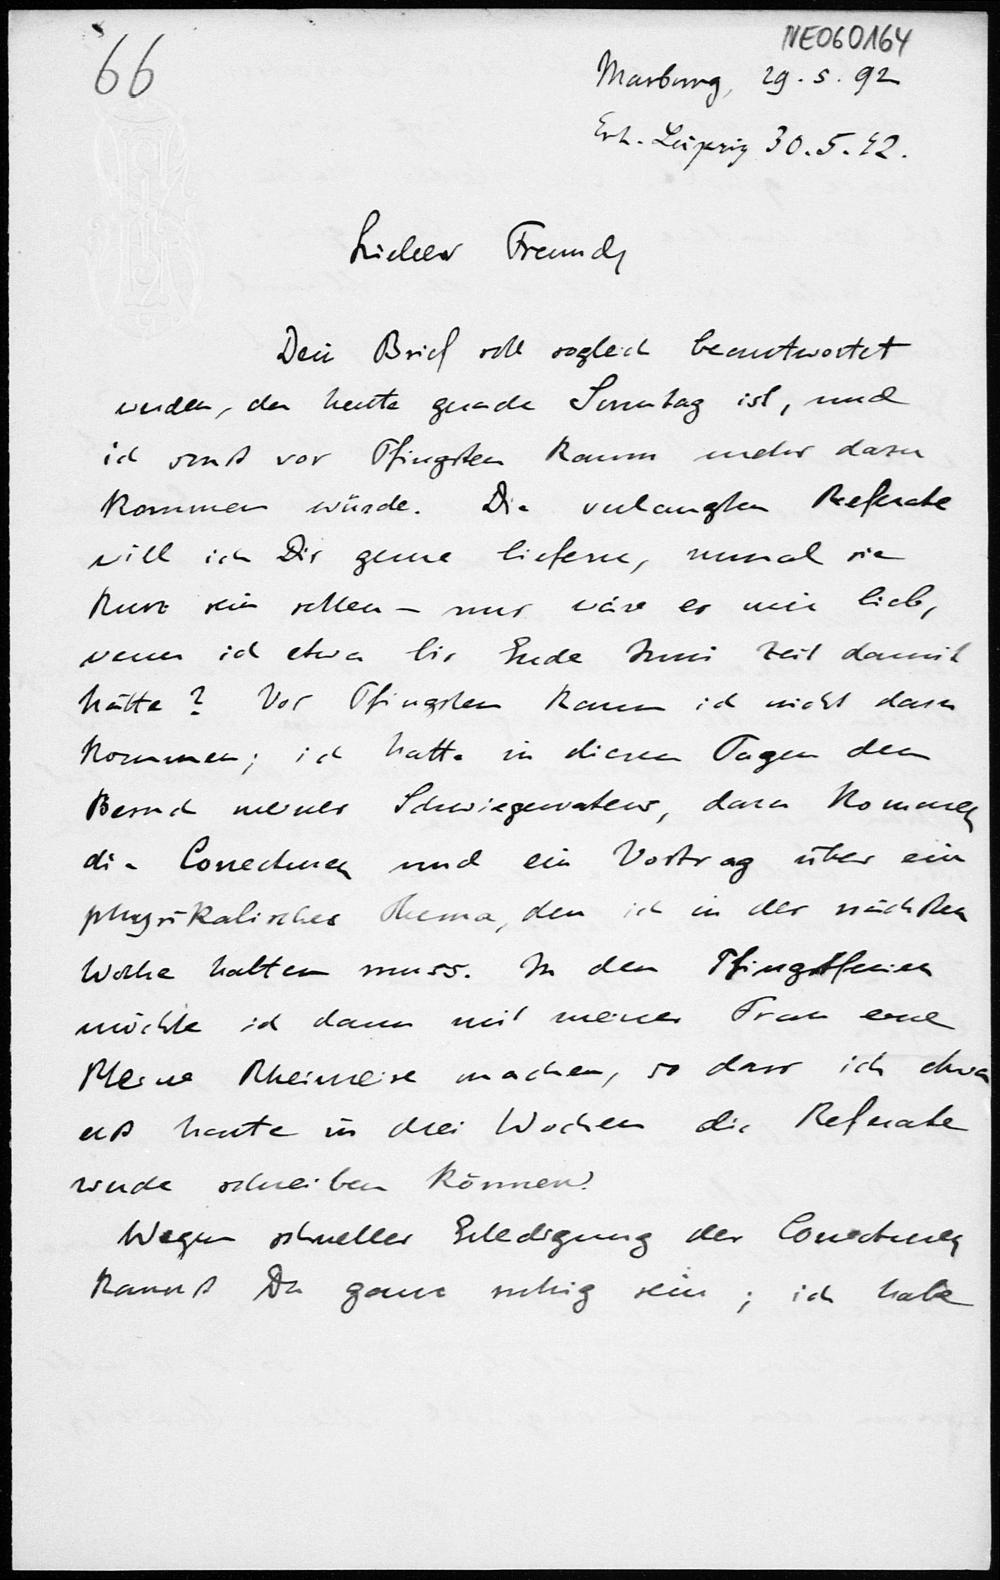 66
NE060164
Marburg, 29.5.92
Erh. Leipzig 30.5.92.
Lieber Freund,
Dein Brief soll sogleich beantwortet
werden, da heute gerade Sonntag ist, und
ich sonst vor Pfingsten kaum mehr dazu
kommen würde. Die verlangten Referate
will ich Dir gerne liefern, zumal sie
kurz sein sollen – nur wäre es mir lieb,
wenn ich etwa bis Ende Juni Zeit damit
hätte? Vor Pfingsten kann ich nicht dazu
kommen; ich hatte in diesen Tagen den
Besuch meines Schwiegervaters, dazu kommen
die Correcturen und ein Vortrag über ein
physikalisches Thema, den ich in der nächsten
Woche halten muss. In den Pfingstferien
möchte ich dann mit meiner Frau eine
kleine Rheinreise machen, so dass ich etwa
erst heute in drei Wochen die Referate
werde schreiben können.
Wegen schneller Erledigung der Correcturen
kannst Du ganz ruhig sein; ich habe